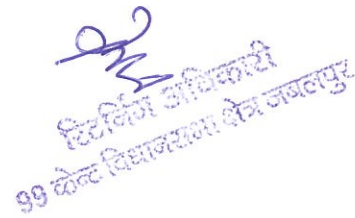 रिटर्निंग अधिकारी
99 केन्ट विधानसभा क्षेत्र जबलपुर